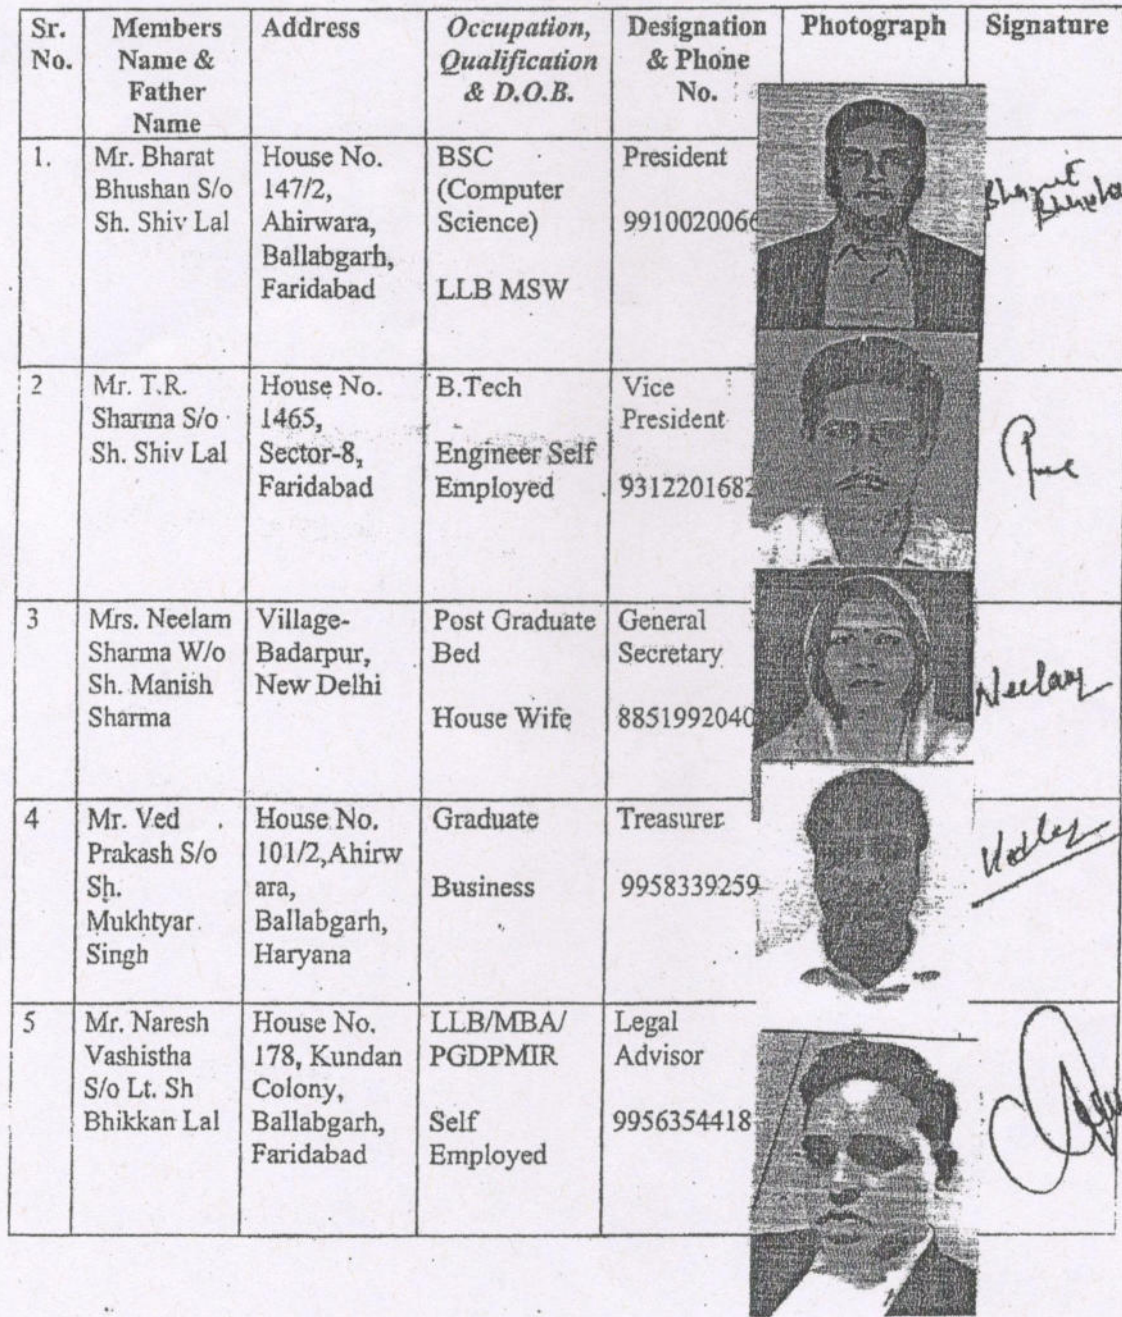 Sr. No.
Members Name & Father Name
Address
Occupation, Qualification & D.O.B.
Designation & Phone No.
Photograph
Signature
1.
Mr. Bharat
Bhushan S/o
Sh. Shiv Lal
House No.
147/2,
Ahirwara,
Ballabgarh,
Faridabad
BSC
(Computer
Science)
LLB MSW
President
9910020066
Bharat
Bhushan
2
Mr. T.R.
Sharma S/o
Sh. Shiv Lal
House No.
1465,
Sector-8,
Faridabad
B.Tech
Engineer Self
Employed
Vice
President
9312201682
3
Mrs. Neelam
Sharma W/o
Sh. Manish
Sharma
Village-
Badarpur,
New Delhi
Post Graduate
Bed
House Wife
General
Secretary
8851992040
Neelam
4
Mr. Ved
Prakash S/o
Sh.
Mukhtyar
Singh
House No.
101/2,Ahirw
ara,
Ballabgarh,
Haryana
Graduate
Business
Treasurer
9958339259
5
Mr. Naresh
Vashistha
S/o Lt. Sh
Bhikkan Lal
House No.
178, Kundan
Colony,
Ballabgarh,
Faridabad
LLB/MBA/
PGDPMIR
Self
Employed
Legal
Advisor
9956354418